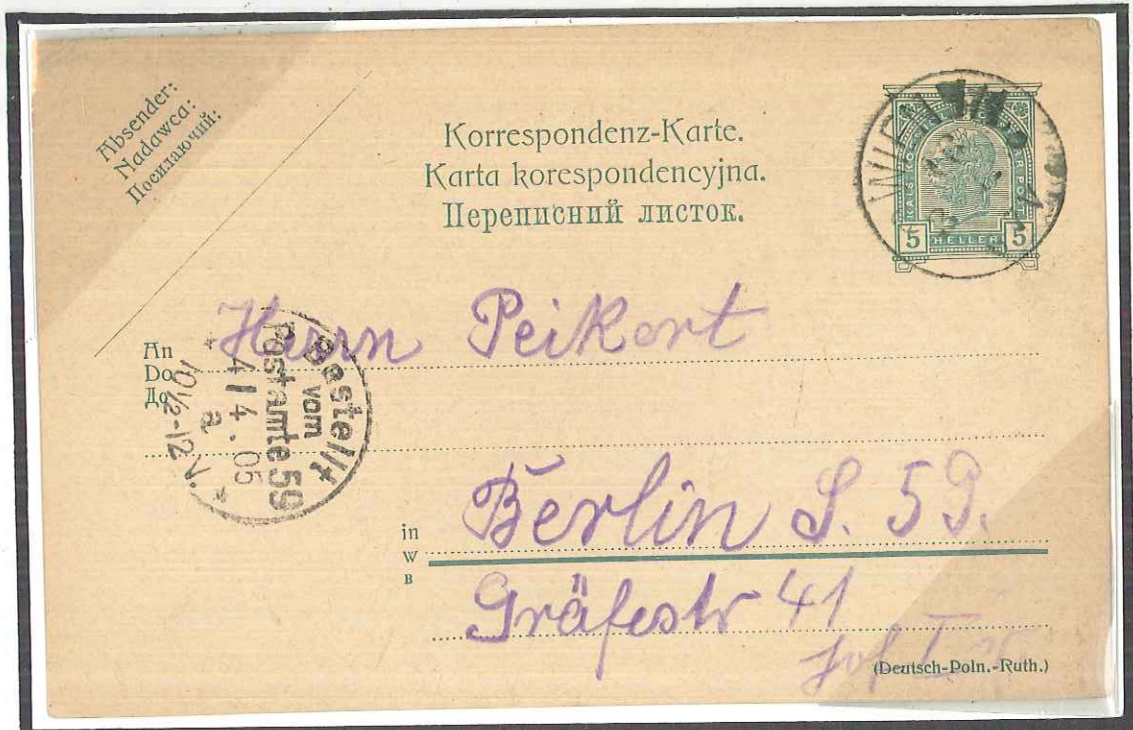 Absender:
Nadawca:
Посилаючий:
Korrespondenz-Karte.
Karta korespondencyjna.
Переписний листок.
WIEN
5 HELLER 5
An
Do
До
Herrn Peikert
Bestellt
vom
Postamte 59
4/4.05
a
10½-12 V.
in
W
в
Berlin S. 59.
Gräfestr 41
Hof I
(Deutsch-Poln.-Ruth.)